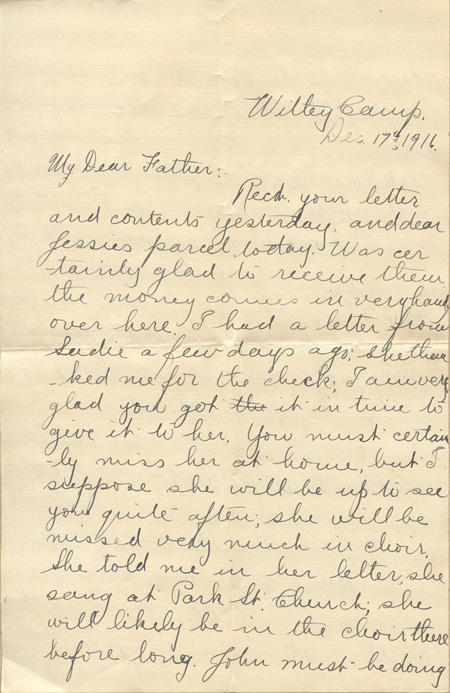 Witley Camp.
Dec. 17th, 1916.
My Dear Father:-
Recd. your letter
and contents yesterday, and dear
Jessies parcel today. Was cer
-tainly glad to receive them
the money comes in very handy
over here. I had a letter from
Sadie a few days ago; she than
-ked me for the check; I am very
glad you got the it in time to
give it to her. You must certain
-ly miss her at home, but I
suppose she will be up to see
you quite often; she will be
missed very much in choir.
She told me in her letter, she
sang at Park St. Church; she
will likely be in the choir there
before long. John must be doing